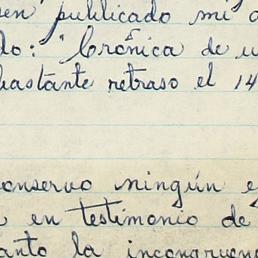 sen publicado mi a
do: "Crónica de u
bastante retraso el 14
onservo ningún e
en testimonio de
anto la incongruen